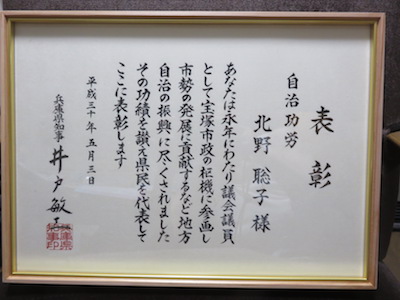 表彰
自治功労
北野聡子様
あなたは永年にわたり議会議員
として宝塚市政の枢機に参画し
市勢の発展に貢献するなど地方
自治の振興に尽くされました
その功績を讃え県民を代表して
ここに表彰します
平成三十年五月三日
兵庫県知事 井戸敏三